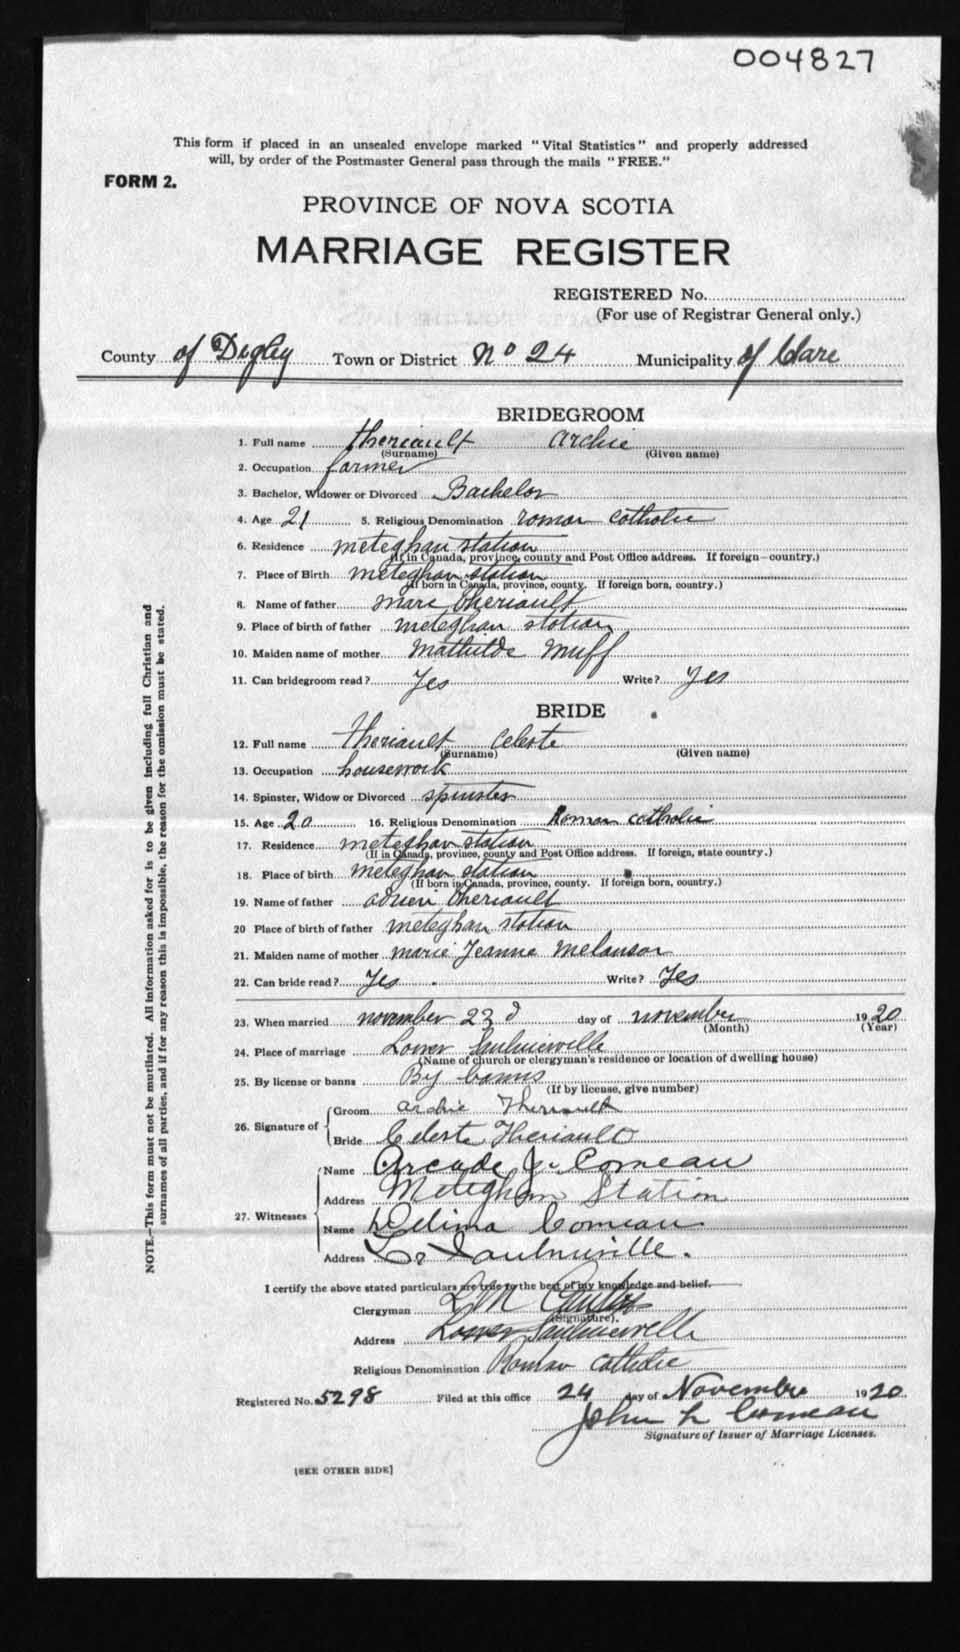 004827
This form if placed in an unsealed envelope marked "Vital Statistics" and properly addressed
will, by order of the Postmaster General pass through the mails "FREE."
FORM 2.
PROVINCE OF NOVA SCOTIA
MARRIAGE REGISTER
REGISTERED No.
(For use of Registrar General only.)
County of Digby Town or District No 24 Municipality of Clare
BRIDEGROOM
1. Full name Theriault Archie
(Surname) (Given name)
2. Occupation farmer
3. Bachelor, Widower or Divorced Bachelor
4. Age 21 5. Religious Denomination roman catholic
6. Residence meteghan station
(If in Canada, province, county and Post Office address. If foreign—country.)
7. Place of Birth meteghan station
(If born in Canada, province, county. If foreign born, country.)
8. Name of father marc theriault
9. Place of birth of father meteghan station
10. Maiden name of mother Mathilde Muff
11. Can bridegroom read? Yes Write? Yes
BRIDE
12. Full name Theriault Celeste
(Surname) (Given name)
13. Occupation housework
14. Spinster, Widow or Divorced spinster
15. Age 20 16. Religious Denomination Roman catholic
17. Residence meteghan station
(If in Canada, province, county and Post Office address. If foreign, state country.)
18. Place of birth meteghan station
(If born in Canada, province, county. If foreign born, country.)
19. Name of father adrien theriault
20 Place of birth of father meteghan station
21. Maiden name of mother marie Jeanne melanson
22. Can bride read? Yes Write? Yes
23. When married november 23 d day of november 1920
(Month) (Year)
24. Place of marriage Lower Saulnierville
(Name of church or clergyman's residence or location of dwelling house)
25. By license or banns By banns
(If by license, give number)
26. Signature of
Groom archie Theriault
Bride Celeste Theriault
27. Witnesses
Name Arcade J. Comeau
Address Meteghan Station
Name Delima Comeau
Address L. Saulnierville.
I certify the above stated particulars are true to the best of my knowledge and belief.
Clergyman
(Signature).
Address Lower Saulnierville
Religious Denomination Roman catholic
Registered No. 5298 Filed at this office 24 day of November 1920
John L Comeau
Signature of Issuer of Marriage Licenses.
[SEE OTHER SIDE]
NOTE.—This form must not be mutilated. All information asked for is to be given including full Christian and
surnames of all parties, and if for any reason this is impossible, the reason for the omission must be stated.